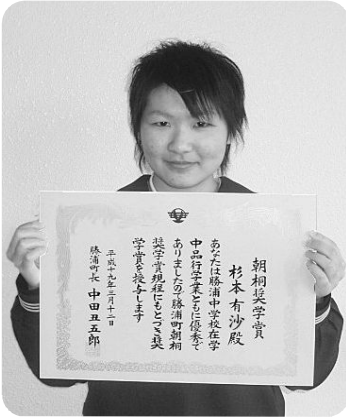 朝桐奨学賞
杉本有沙殿
あなたは勝浦中学校在学
中品行学業ともに優秀で
ありましたので勝浦町朝桐
奨学賞規程にもとづき奨
学賞を授与します
平成十九年三月十二日
勝浦町長 中田丑五郎